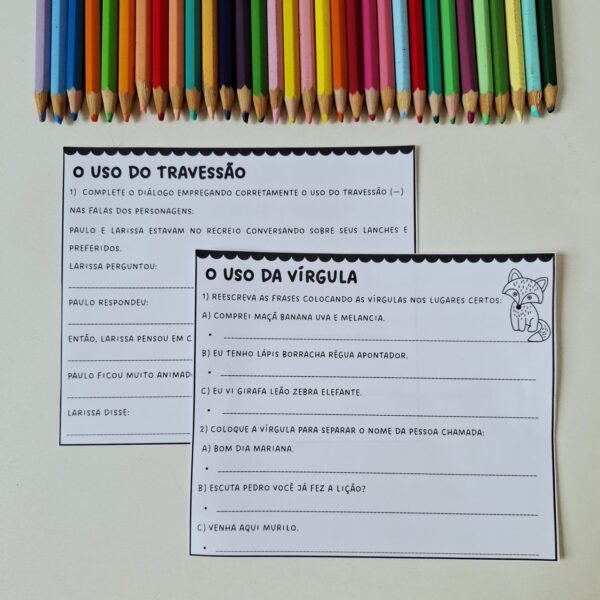 O USO DO TRAVESSÃO
1) COMPLETE O DIÁLOGO EMPREGANDO CORRETAMENTE O USO DO TRAVESSÃO (—)
NAS FALAS DOS PERSONAGENS:
PAULO E LARISSA ESTAVAM NO RECREIO CONVERSANDO SOBRE SEUS LANCHES E
PREFERIDOS.
LARISSA PERGUNTOU:
PAULO RESPONDEU:
ENTÃO, LARISSA PENSOU EM C
PAULO FICOU MUITO ANIMAD
LARISSA DISSE:
O USO DA VÍRGULA
1) REESCREVA AS FRASES COLOCANDO AS VÍRGULAS NOS LUGARES CERTOS:
A) COMPREI MAÇÃ BANANA UVA E MELANCIA.
B) EU TENHO LÁPIS BORRACHA RÉGUA APONTADOR.
C) EU VI GIRAFA LEÃO ZEBRA ELEFANTE.
2) COLOQUE A VÍRGULA PARA SEPARAR O NOME DA PESSOA CHAMADA:
A) BOM DIA MARIANA.
B) ESCUTA PEDRO VOCÊ JÁ FEZ A LIÇÃO?
C) VENHA AQUI MURILO.